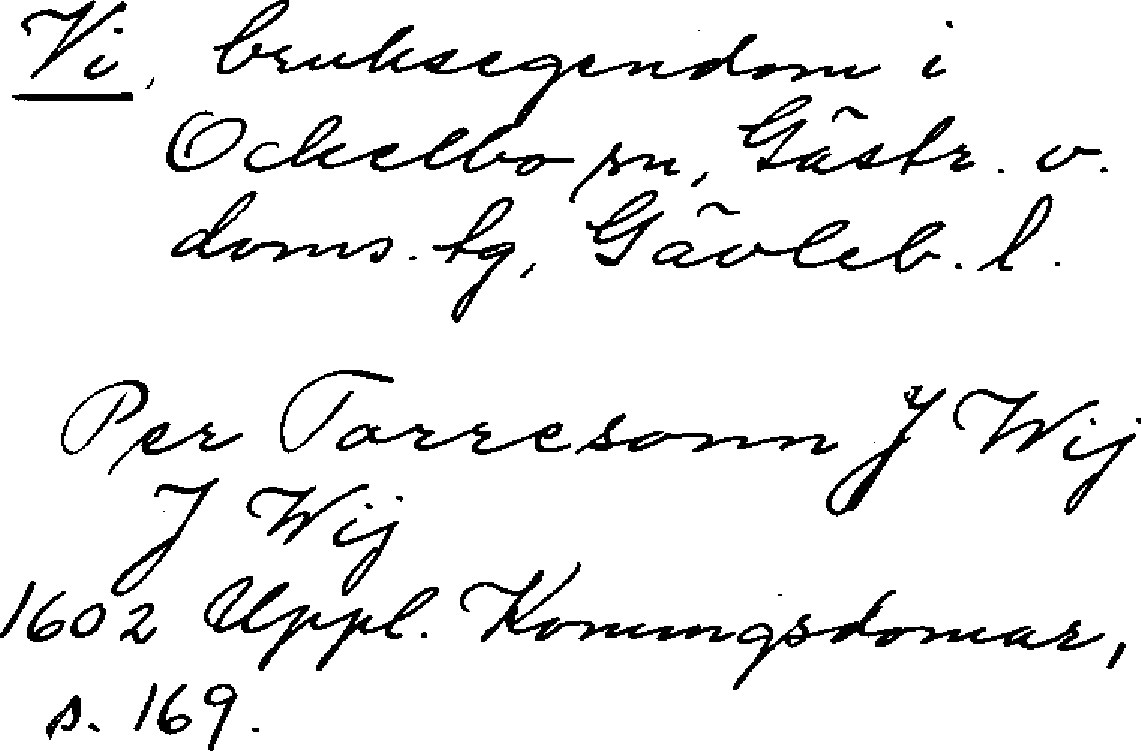 Vi, bruksegendom i
Ockelbo sn, Gästr. v.
doms. tg, Gävleb. l.
Per Torresonn J Wij
J Wij
1602 Uppl. Konungsdomar,
s. 169.